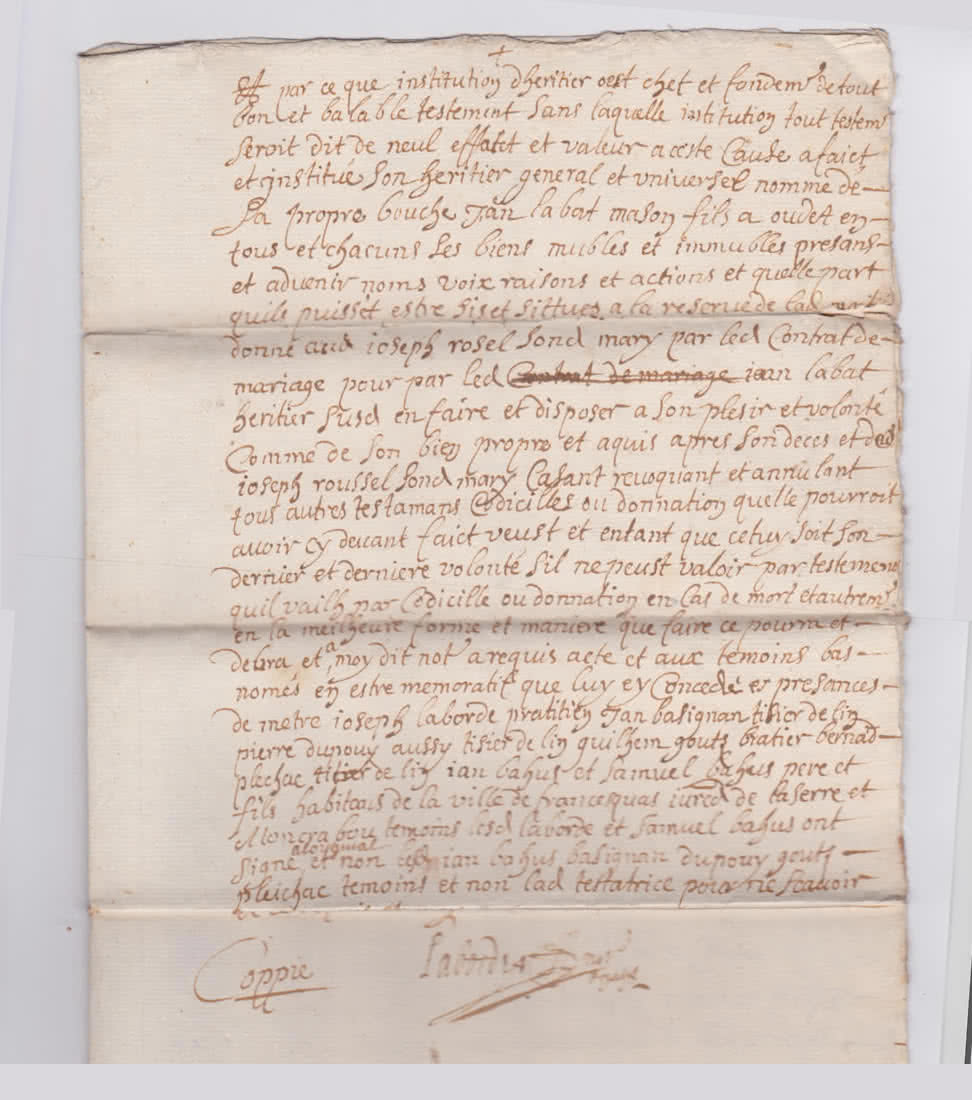 +
Et par ce que institution dheritier oest chef et fondemt de tout
bon et balable testement sans laquelle institution tout testemt
seroit dit de neul effaict et valeur a ceste Cause a faict
et institué son heritier general et universel nommé de
sa propre bouche Jan labat mason fils a oudet en
tous et chacuns ses biens mubles et immubles presans
et advenir noms voix raisons et actions et quelle part
quils puisset estre sis et sittues a la reserve de lad part
donné aud joseph rosel sond mary par led Contrat de
mariage pour par led Contrat de mariage jan labat
heritier susd en faire et disposer a son plesir et volonté
Comme de son bien propre et aquis apres son deces et dud
joseph roussel sond mary Casant revoquant et annulant
tous autres testamans Codicilles ou donnation quelle pourroit
avoir cy devant faict veust et entant que cetuy soit son
dernier et derniere volonté sil ne peust valoir par testement
quil vailh par Codicille ou donnation en Cas de mort et autremt
en la meilheure forme et maniere que faire ce pourra et
debra et a moy dit notre a requis acte et aux temoins bas
només en estre memoratif que luy ey Concedé es presances
de metre joseph laborde pratitien Jan basignan tisier de lin
pierre dupouy aussy tisier de lin guilhem gouts bratier bernad
plechac titier de lin jan bahus et samuel bahus pere et
fils habitans de la ville de francesquas jured de laserre et
Moncrabou temoins lesd laborde et samuel bahus ont
signé a loriginal et non lesd jan bahus basignan dupouy gouts
pleichac temoins et non lad testatrice pour ne scavoir
Coppie